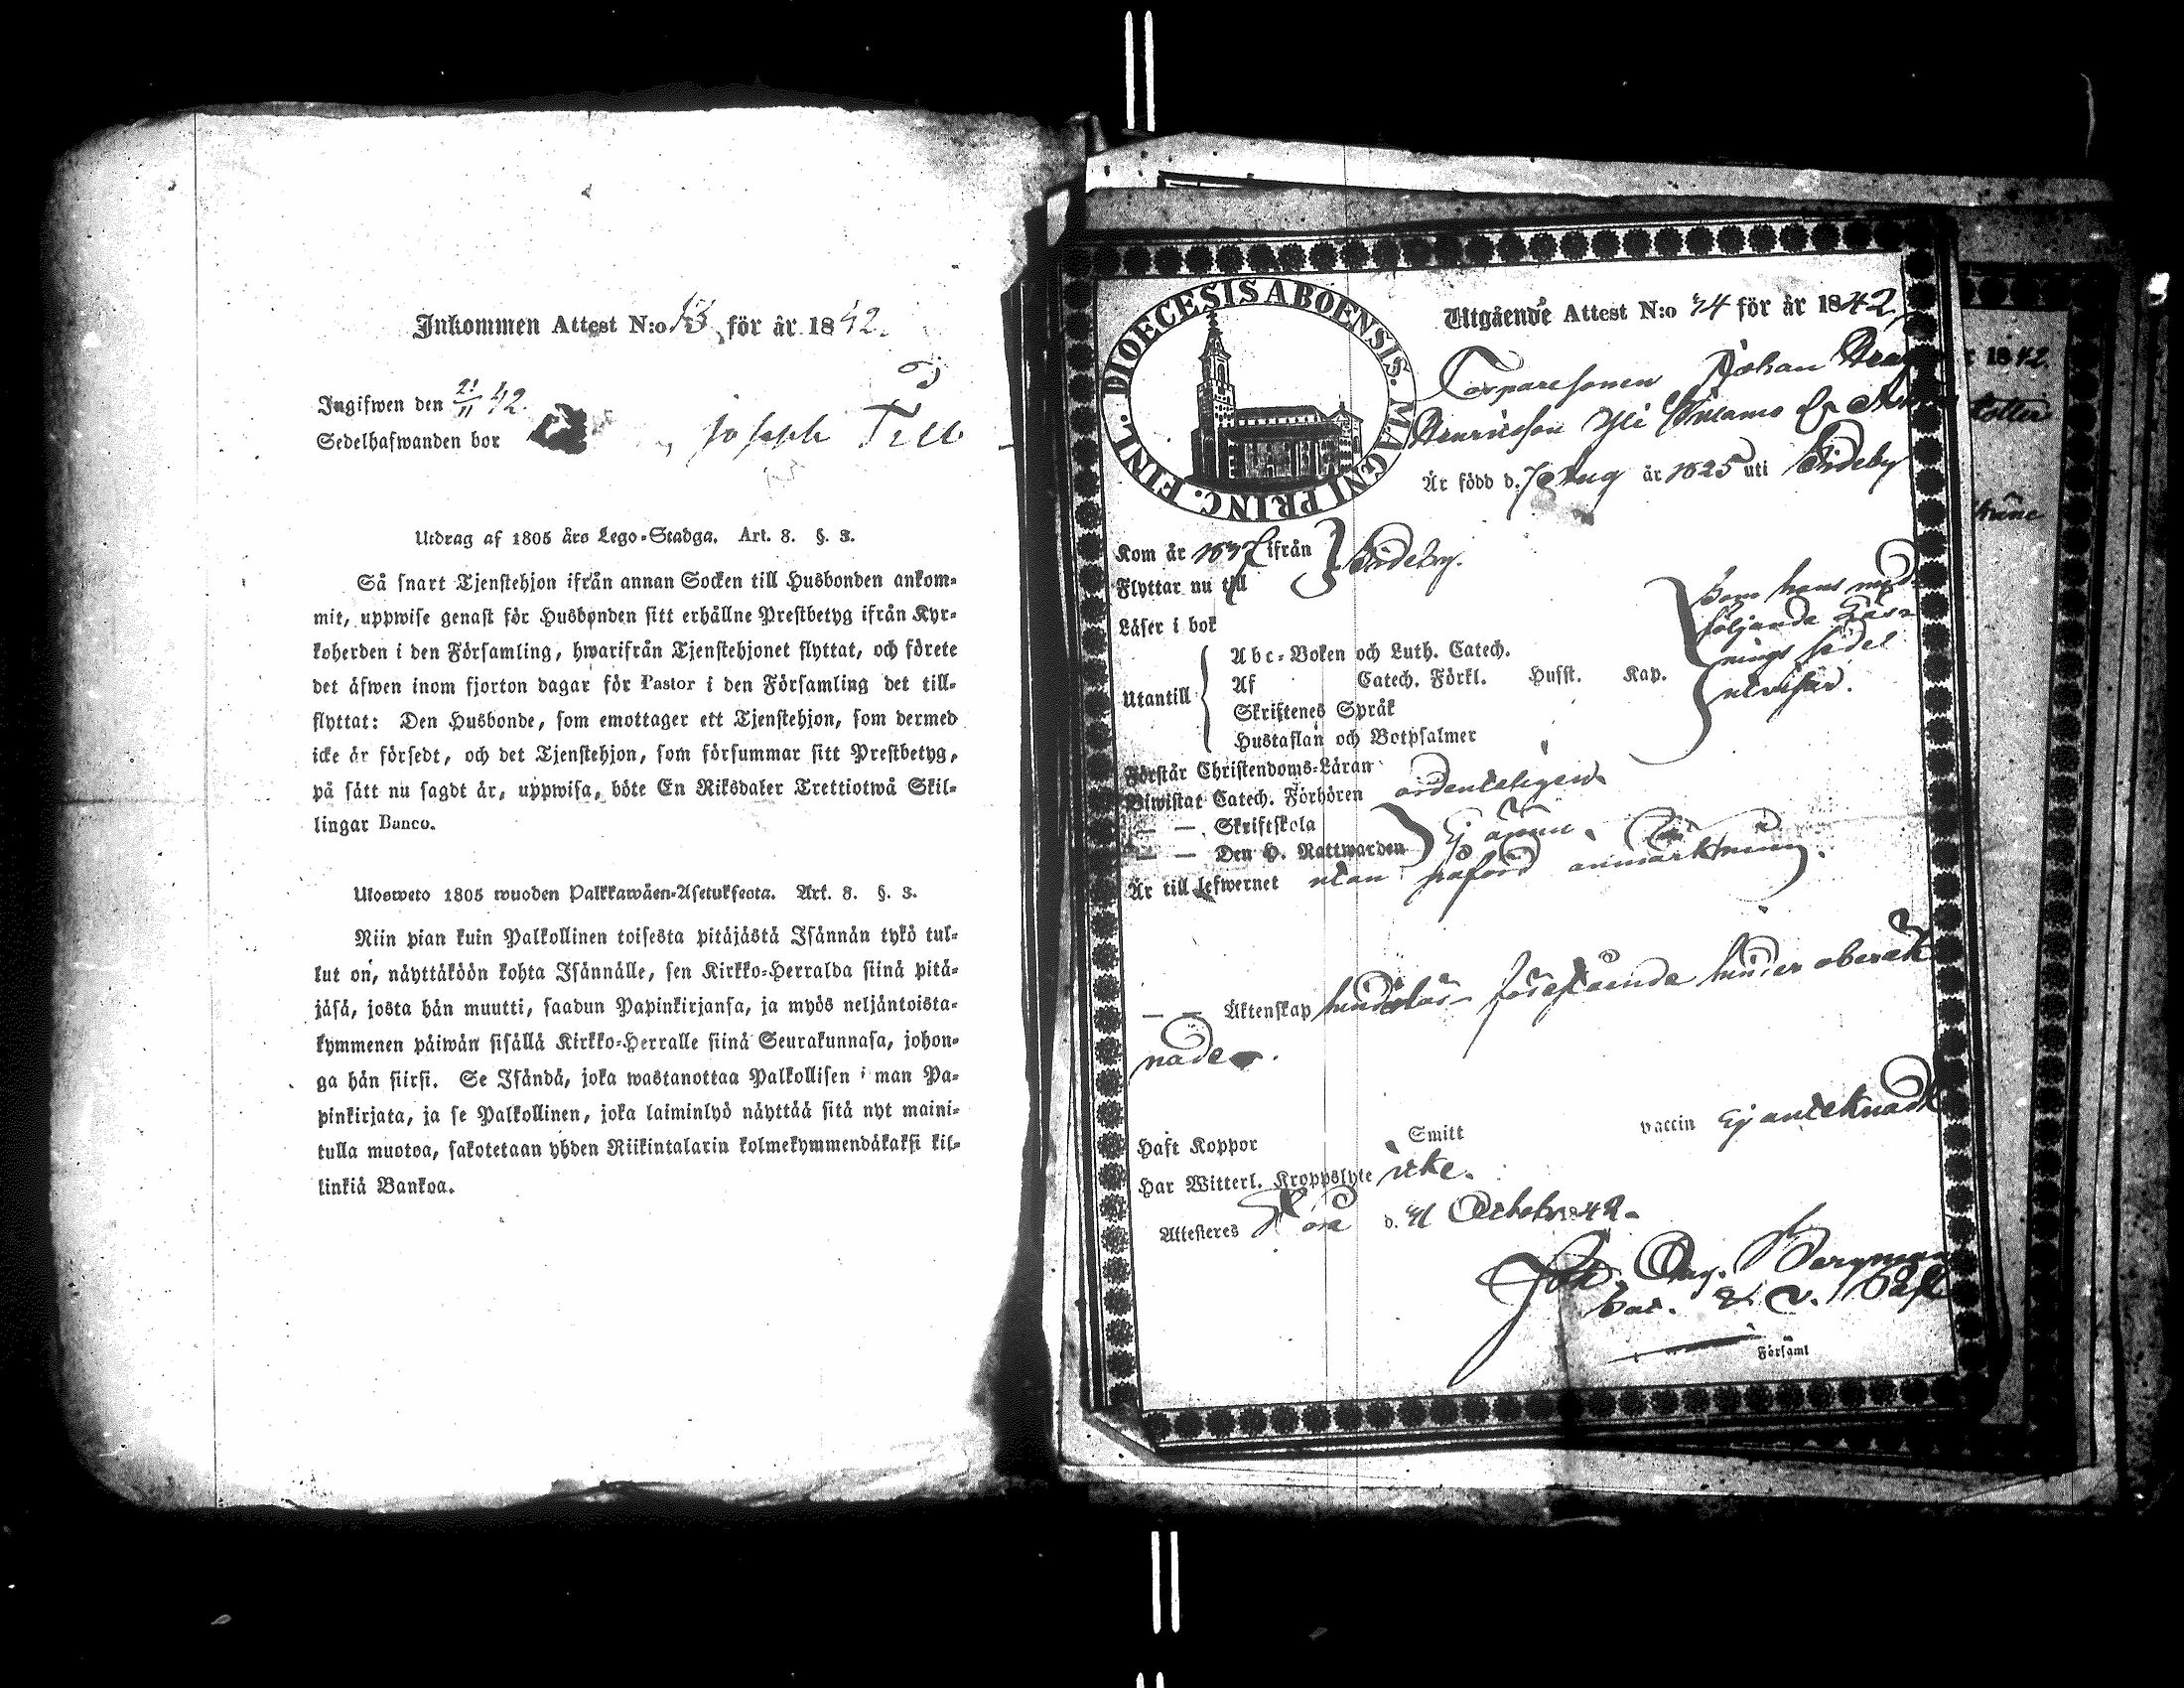 Inkommen Attest N:o 13 för år 1842.
Ingifwen den 21/11 42.
Sedelhafwanden bor Joseph
Utdrag af 1805 års Lego-Stadga. Art. 8. §. 3.
Så snart Tjenstehjon ifrån annan Socken till Husbonden ankom-
mit, uppwise genast för Husbonden sitt erhållne Prestbetyg ifrån Kyr-
koherden i den Församling, hwarifrån Tjenstehjonet flyttat, och förete
det äfwen inom fjorton dagar för Pastor i den Församling det till-
flyttat: Den Husbonde, som emottager ett Tjenstehjon, som dermed
icke är försedt, och det Tjenstehjon, som försummar sitt Prestbetyg,
på sätt nu sagdt är, uppwisa, böte En Riksdaler Trettiotwå Skil-
lingar Banco.
Ulosweto 1805 wuoden Palkkawäen-Asetuksesta. Art. 8. §. 3.
Niin pian kuin Palkollinen toisesta pitäjästä Isännän tykö tul-
lut on, näyttäköön kohta Isännälle, sen Kirkko-Herralda siinä pitä-
jäsä, josta hän muutti, saadun Papinkirjansa, ja myös neljäntoista-
kymmenen päiwän sisällä Kirkko-Herralle siinä Seurakunnasa, johon-
ga hän siirsi. Se Isändä, joka wastanottaa Palkollisen i man Pa-
pinkirjata, ja se Palkollinen, joka laiminlyö näyttää sitä nyt maini-
tulla muotoa, sakotetaan yhden Riikintalarin kolmekymmendäkaksi kil-
linkiä Bankoa.
DIOECESIS ABOENSIS. MAGNI PRINC. FINL.
Utgående Attest N:o 44 för år 1842
Torparesonen Johan
Henricsson Yli
Är född d. 7 Aug år 1825 uti
Kom år 1837 ifrån
Flyttar nu till
Läser i bok
Utantill
Abc-Boken och Luth. Catech.
Af Catech. Förkl. Husst. Kap.
Skriftenes Språk
Hustaflan och Botpsalmer
Som hans med-
följande Läs-
nings sedel
utvisar.
Förstår Christendoms-Läran
Biwistat Catech. Förhören ordenteligen
— — Skriftskola
— — Den H. Nattwarden Ej ännu.
Är till lefwernet utan påförd anmärkning.
— — Äktenskap hinderlös
Haft Koppor Smitt vaccin Ej antecknadt
Har Witterl. Kroppslyte icke.
Attesteres d. October 1842.
Joh. Aug. Bergman
Församl
1842.